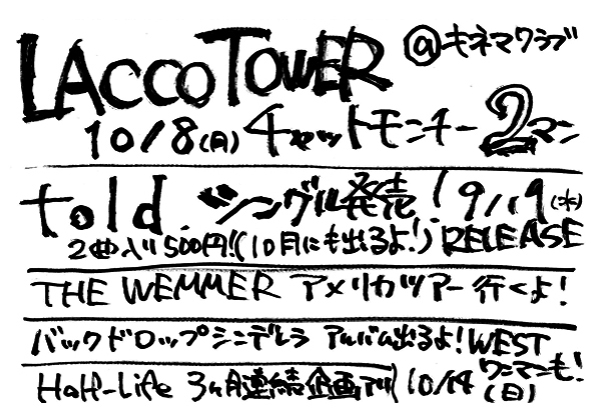 LACCO TOWER @キネマクラブ
10/8(月) チャットモンチー 2マン
told. シングル発売! 9/19(水)
2曲入り500円!!(10月にも出るよ!) RELEASE
THE WEMMER アメリカツアー行くよ!
バックドロップシンデレラ アルバム出るよ! WEST
Half-Life 3ヶ月連続企画 10/14(日) ワンマンも!